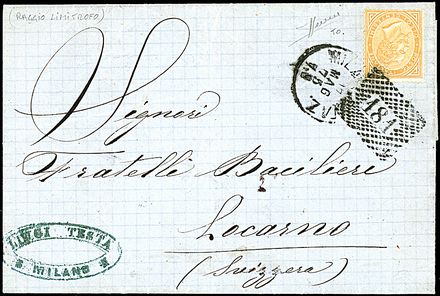 (RAGGIO LIMITROFO)
50.
MILANO
MAG
75
181
Signori
Fratelli Bacilieri
Locarno
(Svizzera)
LUIGI TESTA
MILANO